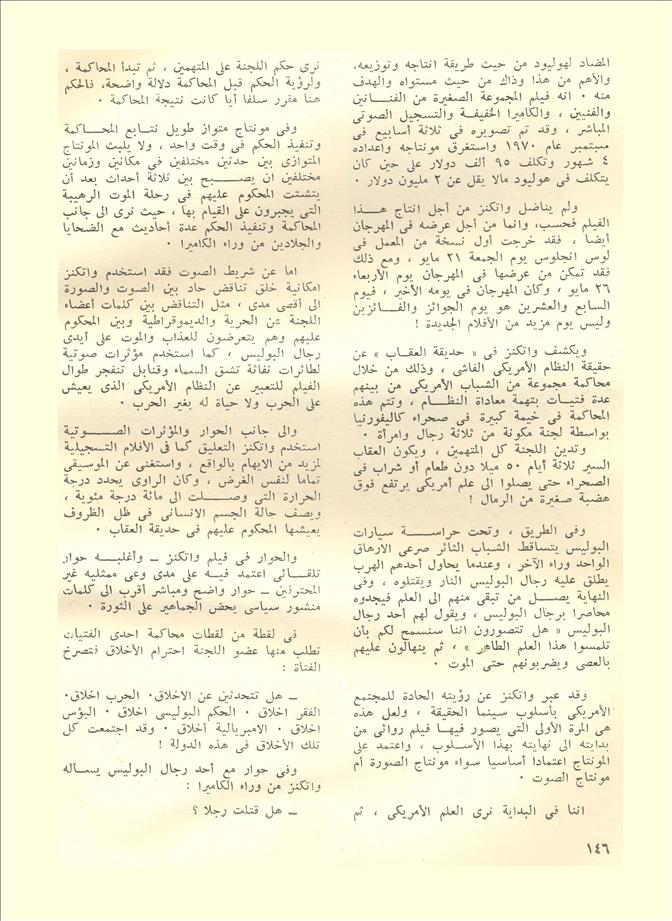 المضاد لهوليود من حيث طريقة انتاجه وتوزيعه،
والأهم من هذا وذاك من حيث مستواه والهدف
منه . انه فيلم المجموعة الصغيرة من الفنـــانين
والفنيين ، والكاميرا الخفيفـة والتسجيل الصوتى
المباشر ، وقد تم تصويره فى ثلاثة أسابيع فى
سبتمبر عام ١٩٧٠ واستغرق مونتاجه واعداده
٤ شهور وتكلف ٩٥ ألف دولار على حين كان
يتكلف فى هوليود مالا يقل عن ٢ مليون دولار .
ولم يناضل واتكنز من أجل انتاج هـــذا
الفيلم فحسب، وانما من أجل عرضه فى المهرجان
أيضا ، فقد خرجت أول نسخة من المعمل فى
لوس انجلوس يوم الجمعة ٢١ مايو ، ومع ذلك
فقد تمكن من عرضها فى المهرجان يوم الأربعاء
٢٦ مايو ، وكان المهرجان فى يومه الأخير ، فيوم
السابع والعشرين هو يوم الجوائز والفـــائزين
وليس يوم مزيد من الأفلام الجديدة !
ويكشف واتكنز فى « حديقة العقـاب » عن
حقيقة النظام الأمريكى الفاشى ، وذلك من خلال
محاكمة مجموعة من الشباب الأمريكى من بينهم
عدة فتيـات بتهمة معاداة النظـام ، وتتم هذه
المحاكمة فى خيمة كبيرة فى صحراء كاليفورنيا
بواسطة لجنة مكونة من ثلاثة رجال وامرأة .
وتدين اللجنة كل المتهمين ، ويكون العقاب
السير ثلاثة أيام ٥٠ ميلا دون طعام أو شراب فى
الصحراء حتى يصلوا الى علم أمريكى يرتفع فوق
هضبة صغيرة من الرمال !
وفى الطريق ، وتحت حراســـة سيارات
البوليس يتساقط الشباب الثائر صرعى الارهاق
الواحد وراء الآخر ، وعندما يحاول أحدهم الهرب
يطلق عليه رجال البوليس النار ويقتلوه ، وفى
النهاية يصــل من تبقى منهم الى العلم فيجدوه
محاصرا برجال البوليس ، ويقول لهم أحد رجال
البوليس « هل تتصورون اننا سنسمح لكم بأن
تلمسوا هذا العلم الطاهر » ، ثم ينهالون عليهم
بالعصى ويضربونهم حتى الموت .
وقد عبر واتكنز عن رؤيته الحادة للمجتمع
الأمريكى بأسلوب سينما الحقيقة ، ولعل هذه
هى المرة الأولى التى يصور فيهـا فيلم روائى من
بدايته الى نهايته بهذا الأســلوب ، واعتمد على
المونتاج اعتمادا أساسيا سواء مونتاج الصورة أم
مونتاج الصوت .
اننا فى البداية نرى العلم الأمريكى ، ثم
نرى حكم اللجنة على المتهمين ، ثم تبدأ المحاكمة ،
ولرؤية الحكم قبل المحاكمة دلالة واضحة، فالحكم
هنا مقرر سلفا أيا كانت نتيجة المحاكمة .
وفى مونتاج متواز طويل نتـابع المحـــاكمة
وتنفيذ الحكم فى وقت واحد ، ولا يلبث المونتاج
المتوازى بين حدثين مختلفين فى مكانين وزمانين
مختلفين ان يصـــبح بين ثلاثة أحداث بعد أن
يتشتت المحكوم عليهم فى رحلة الموت الرهيبة
التى يجبرون على القيام بها ، حيث نرى الى جانب
المحاكمة وتنفيذ الحكم عدة أحاديث مع الضحايا
والجلادين من وراء الكاميرا .
اما عن شريط الصوت فقد استخدم واتكنز
امكانية خلق تناقض حاد بين الصوت والصورة
الى أقصى مدى ، مثل التناقض بين كلمات أعضاء
اللجنة عن الحرية والديموقراطية وبين المحكوم
عليهم وهم يتعرضون للعذاب والموت على أيدى
رجال البوليس ، كما استخدم مؤثرات صوتية
لطائرات نفاثة تشق السماء وقنابل تنفجر طوال
الفيلم للتعبير عن النظام الأمريكى الذى يعيش
على الحرب ولا حياة له بغير الحرب .
والى جانب الحوار والمؤثرات الصـــوتية
استخدم واتكنز التعليق كما فى الأفلام التسجيلية
لمزيد من الايهام بالواقع ، واستغنى عن الموسيقى
تماما لنفس الغرض ، وكان الراوى يحدد درجة
الحرارة التى وصـــلت الى مائة درجة مئوية ،
ويصف حالة الجسم الانسانى فى ظل الظروف
يعيشها المحكوم عليهم فى حديقة العقاب .
والحوار فى فيلم واتكنز ــ وأغلبـــه حوار
تلقـائى اعتمد فيـــه على مدى وعى ممثليه غير
المحترفين ــ حوار واضح ومباشر أقرب الى كلمات
منشور سياسى يحض الجماهير على الثورة .
فى لقطة من لقطات محاكمة احدى الفتيات
تطلب منها عضو اللجنة احترام الأخلاق فتصرخ
الفتاة :
ــ هل تتحدثين عن الاخلاق. الحرب اخلاق.
الفقر اخلاق . الحكم البوليسى اخلاق . البؤس
اخلاق . الامبريالية أخلاق . وقد اجتمعت كل
تلك الأخلاق فى هذه الدولة !
وفى حوار مع أحد رجال البوليس يســأله
واتكنز من وراء الكاميرا :
ــ هل قتلت رجلا ؟
١٤٦